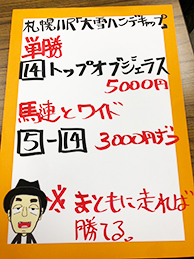 札幌11R「大雪ハンデキャップ」
単勝
14 トップオブジェラス
5000円
馬連とワイド
5-14 3000円ずつ
※まともに走れば
勝てる。